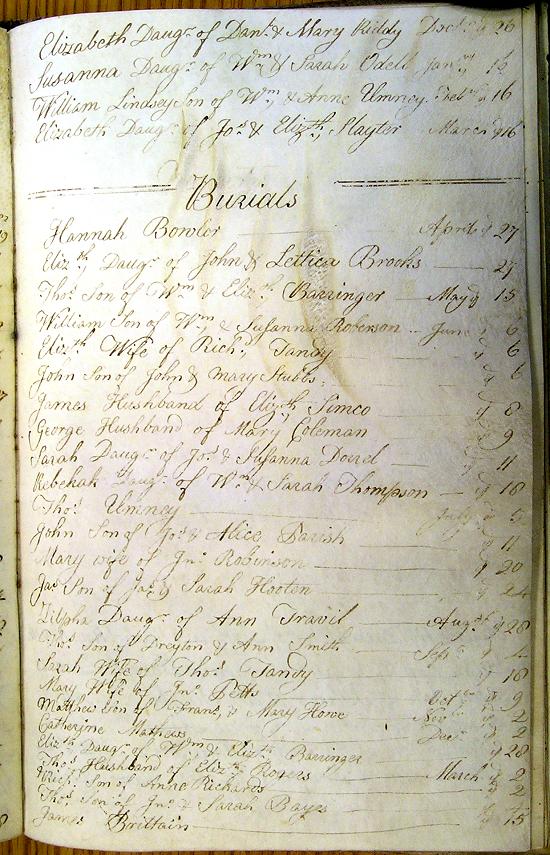 Elizabeth Daugr. of Danl. & Mary Riddy Decr. ye 26
Susanna Daugr. of Wm. & Sarah Odell Janry. 16
William Lindsey Son of Wm. & Anne Umney Feb ye 16
Elizabeth Daugr. of Jos. & Elizth. Slayter March ye 16
Burials
Hannah Bowler April ye 27
Elizth. Daugr. of John & Lettica Brooks 27
Thos. Son of Wm. & Elizth. Barringer May ye 15
William Son of Wm. & Susanna Roberson June ye 6
Elizth. Wife of Richd. Tandy ye 6
John Son of John & Mary Stubbs ye 6
James Hushband of Elizth. Simco ye 8
George Hushband of Mary Coleman ye 9
Sarah Daugr. of Jos. & Susanna ye 11
Rebekah Daugr. of Wm. & Sarah Thompson ye 18
Thos. Umney July ye 5
John Son of Jos. & Alice Parish ye 11
Mary wife of Jno. Robinson ye 20
Jas. Son of Jas. & Sarah Hooton ye 24
Zilpha Daugr. of Ann Travil Augst. ye 28
Thos. Son of Dreyton & Ann Smith Sepr. ye 4
Sarah Wife of Thos. Tandy ye 18
Mary Wife of Jno. Petts Octr. ye 9
Matthew Son of Frans. & Mary Howe Novr. ye 2
Catherine Mathews Decr. ye 2
Elizth. Daugr. of Wm. & Elizth. Barringer ye 28
Thos. Hushband of Elizth. Rogers March ye 2
Richd. Son of Anne Richards ye 2
Thos. Son of Jno. & Sarah Bays
James Brittain ye 15